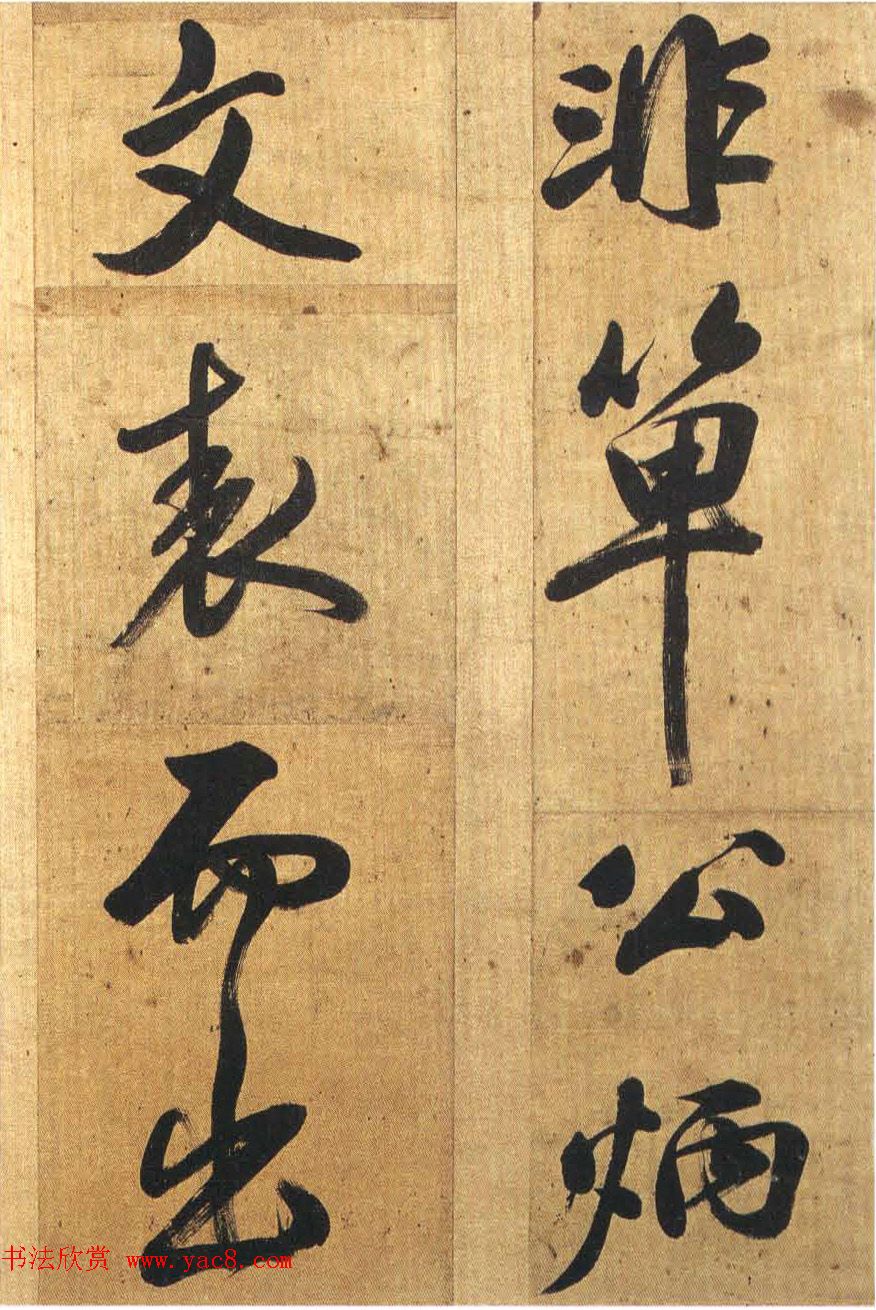 非單公炳
文表而出
书法欣赏 www.yac8.com